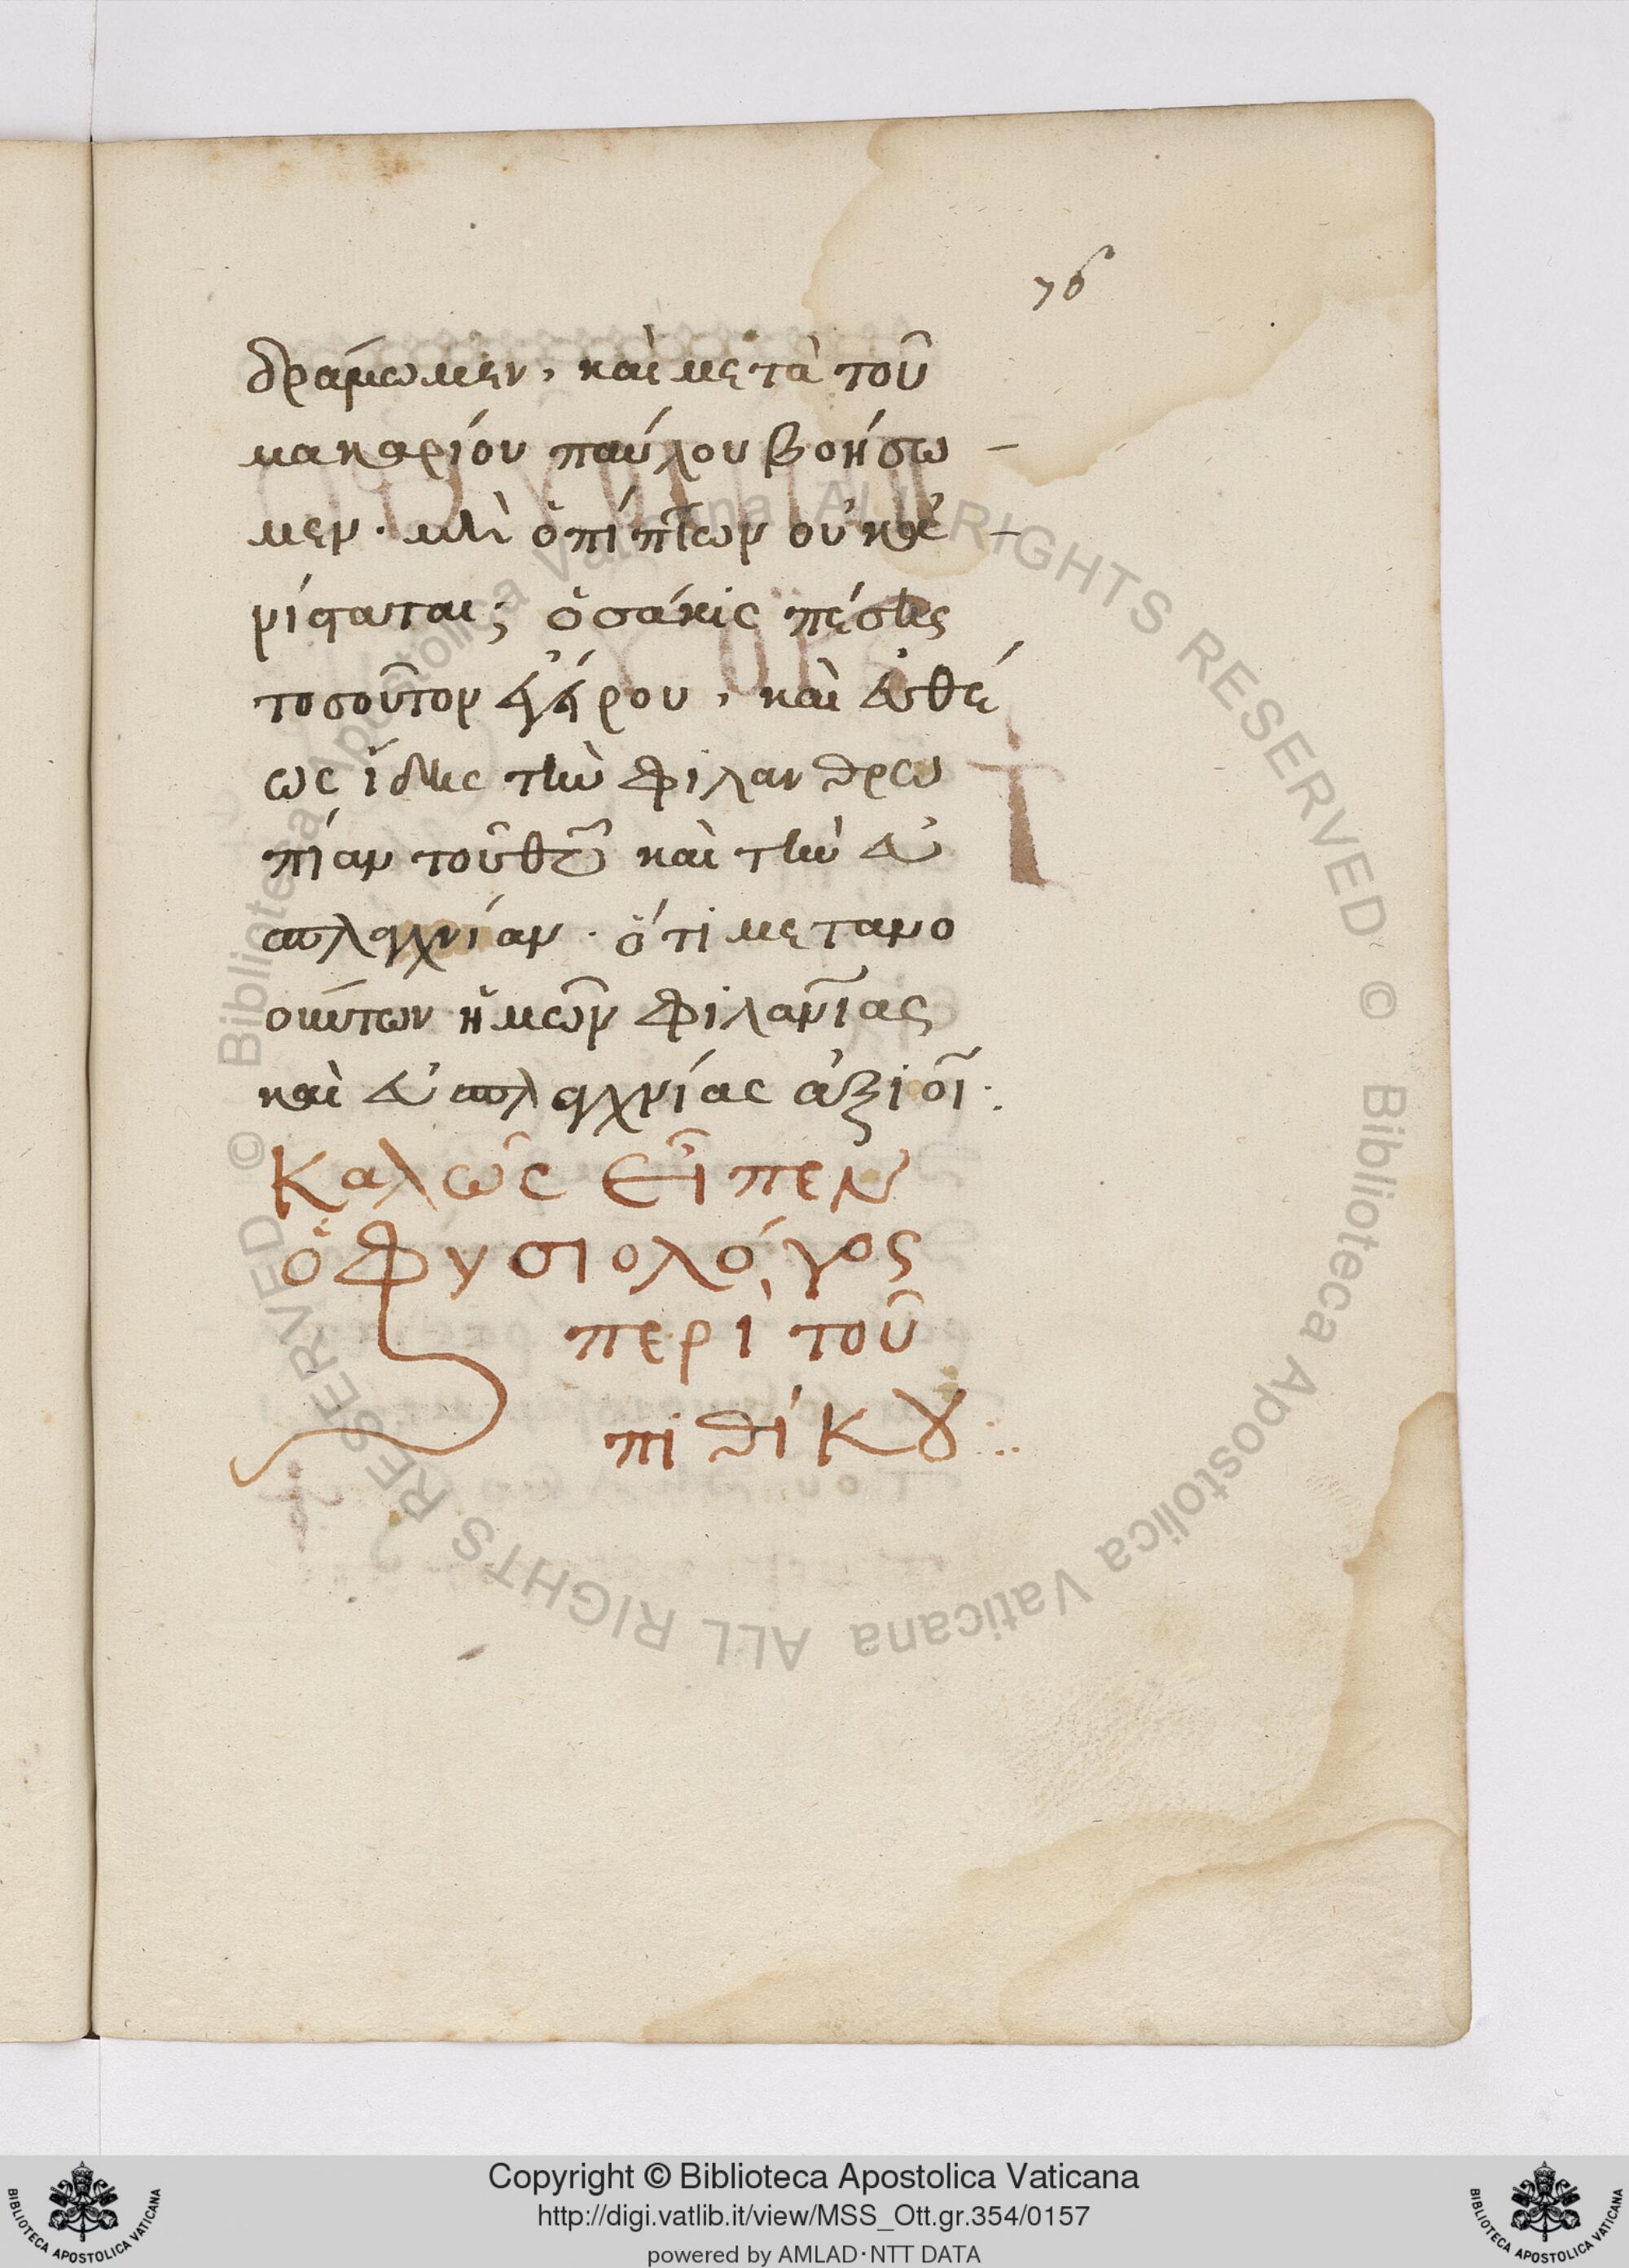 76
δράμωμεν, καὶ μετὰ τοῦ
μακαρίου παύλου βοήσω-
μεν· μὴ ὁ πίπτων οὐκ ἀ-
νίσταται; ὁσάκις πέσεις
τοσοῦτον ἐγέρου, καὶ εὐθέ
ως ἴδης τὴν φιλανθρω
πίαν τοῦ θεοῦ καὶ τὴν εὐ
σπλαγχνίαν· ὅτι μετανο
ούντων ἡμῶν φιλανίας
καὶ εὐσπλαγχνίας ἀξιοῖ:
Καλῶς εἶπεν
ὁ Φυσιολόγος
περὶ τοῦ
πιθίκου:..
© Biblioteca Apostolica Vaticana ALL RIGHTS RESERVED
© Biblioteca Apostolica Vaticana ALL RIGHTS RESERVED
Copyright © Biblioteca Apostolica Vaticana
http://digi.vatlib.it/view/MSS_Ott.gr.354/0157
powered by AMLAD·NTT DATA
BIBLIOTECA APOSTOLICA VATICANA
BIBLIOTECA APOSTOLICA VATICANA